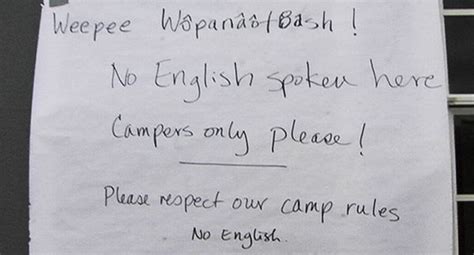 Weepee Wôpanâôt8ash!
No English spoken here
Campers only please!
Please respect our camp rules
No English.